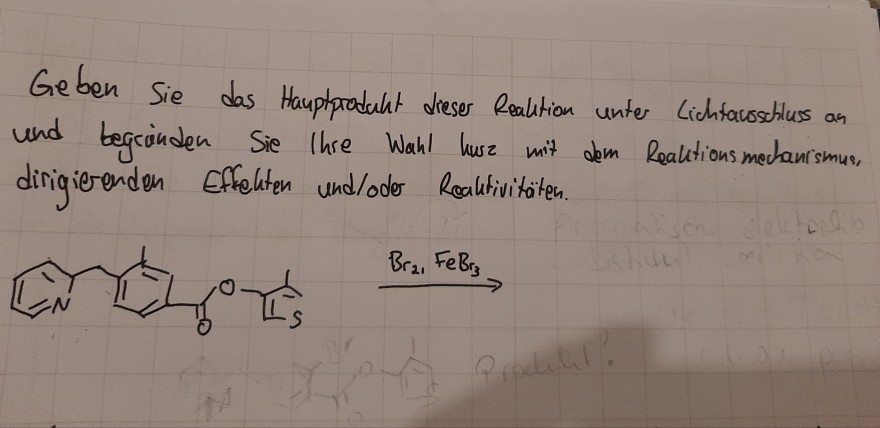 Geben Sie das Hauptprodukt dieser Reaktion unter Lichtausschluss an
und begründen Sie Ihre Wahl kurz mit dem Reaktionsmechanismus,
dirigierenden Effekten und/oder Reaktivitäten.
Br₂, FeBr₃
O
N
O
S
Br
O
Produkt?